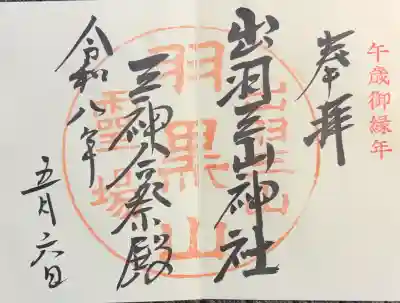 午歳御縁年
奉拝
出羽三山神社
三神合祭殿
令和八年
五月六日
出羽三山
羽黒山
霊場